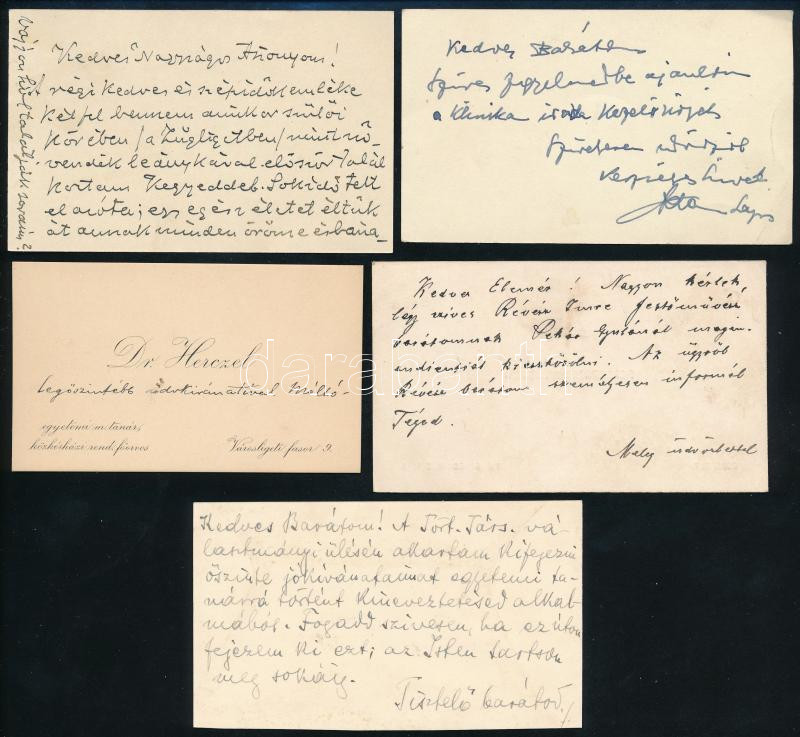 Kedves Nagyságos Asszonyom!
A régi kedves és szép idők emléke
kél fel bennem amikor szülői
körében /a Zugligetben/ mint nö-
vendék leánykával először talál
koztam Kegyeddel. Sok idő telt
el azóta; egy egész életet éltünk
át annak minden öröme és bána-
Vajjon hol találják
Kedves Barátom
Szíves figyelmedbe ajánlom
a klinika
Szívesen üdvözöl
Lajos
Dr. Herczel
legőszintébb üdvkivánataival Méltó-
egyetemi m. tanár,
közkórházi rend. főorvos
Városligeti fasor 9.
Kedves Elemér! Nagyon kérlek,
légy szíves Révész Imre festőművész
barátomnak Pekár Gyulánál magán-
audientiát kieszközölni. Az ügyről
Révész barátom személyesen informál
Téged.
Meleg üdvözlettel
Kedves Barátom! A Tört. Társ. vá-
lasztmányi ülésén akartam kifejezni
őszinte jókívánataimat egyetemi ta-
nárrá történt kineveztetésed alkal-
mából. Fogadd szívesen, ha ez úton
fejezem ki ezt; az Isten tartson
meg sokáig.
Tisztelő barátod
darabanth